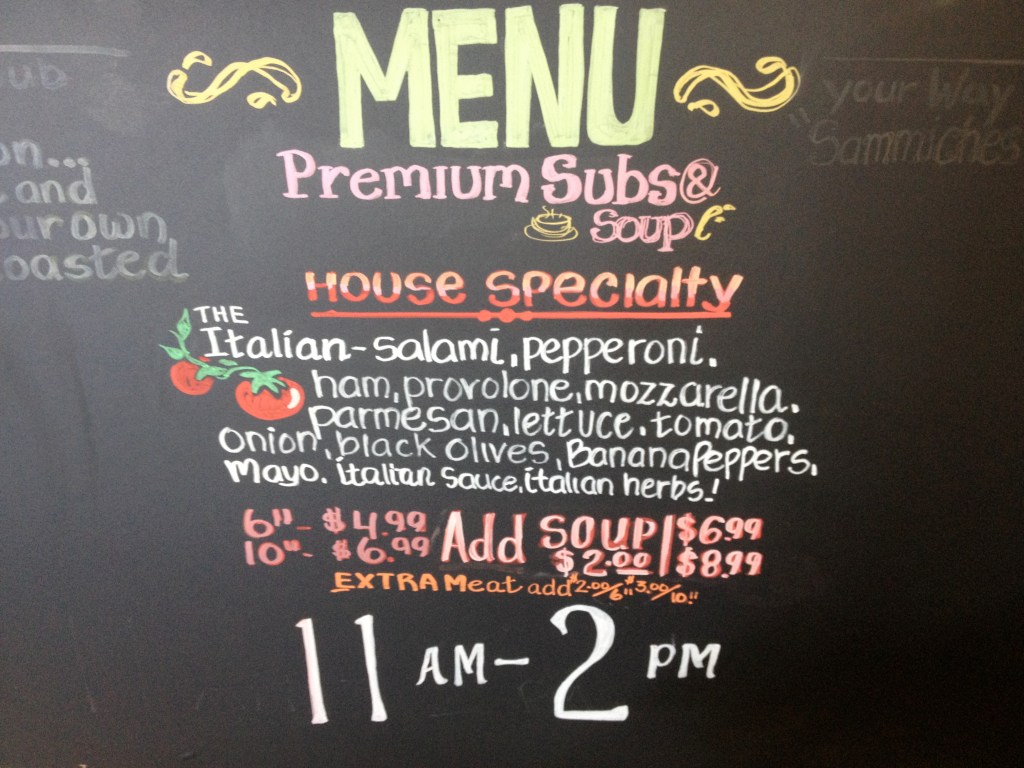 MENU
Premium Subs &
Soup
House Specialty
THE
Italian-salami, pepperoni.
ham, provolone, mozzarella.
parmesan, lettuce. tomato,
onion, black olives, Banana Peppers,
Mayo. italian sauce, italian herbs!
6"- $4.99 Add SOUP | $6.99
10"- $6.99 $2.00 | $8.99
EXTRA Meat add $2.00/6" $3.00/10"
11 AM - 2 PM
ub
on...
and
our own
oasted
your Way
"Sammiches